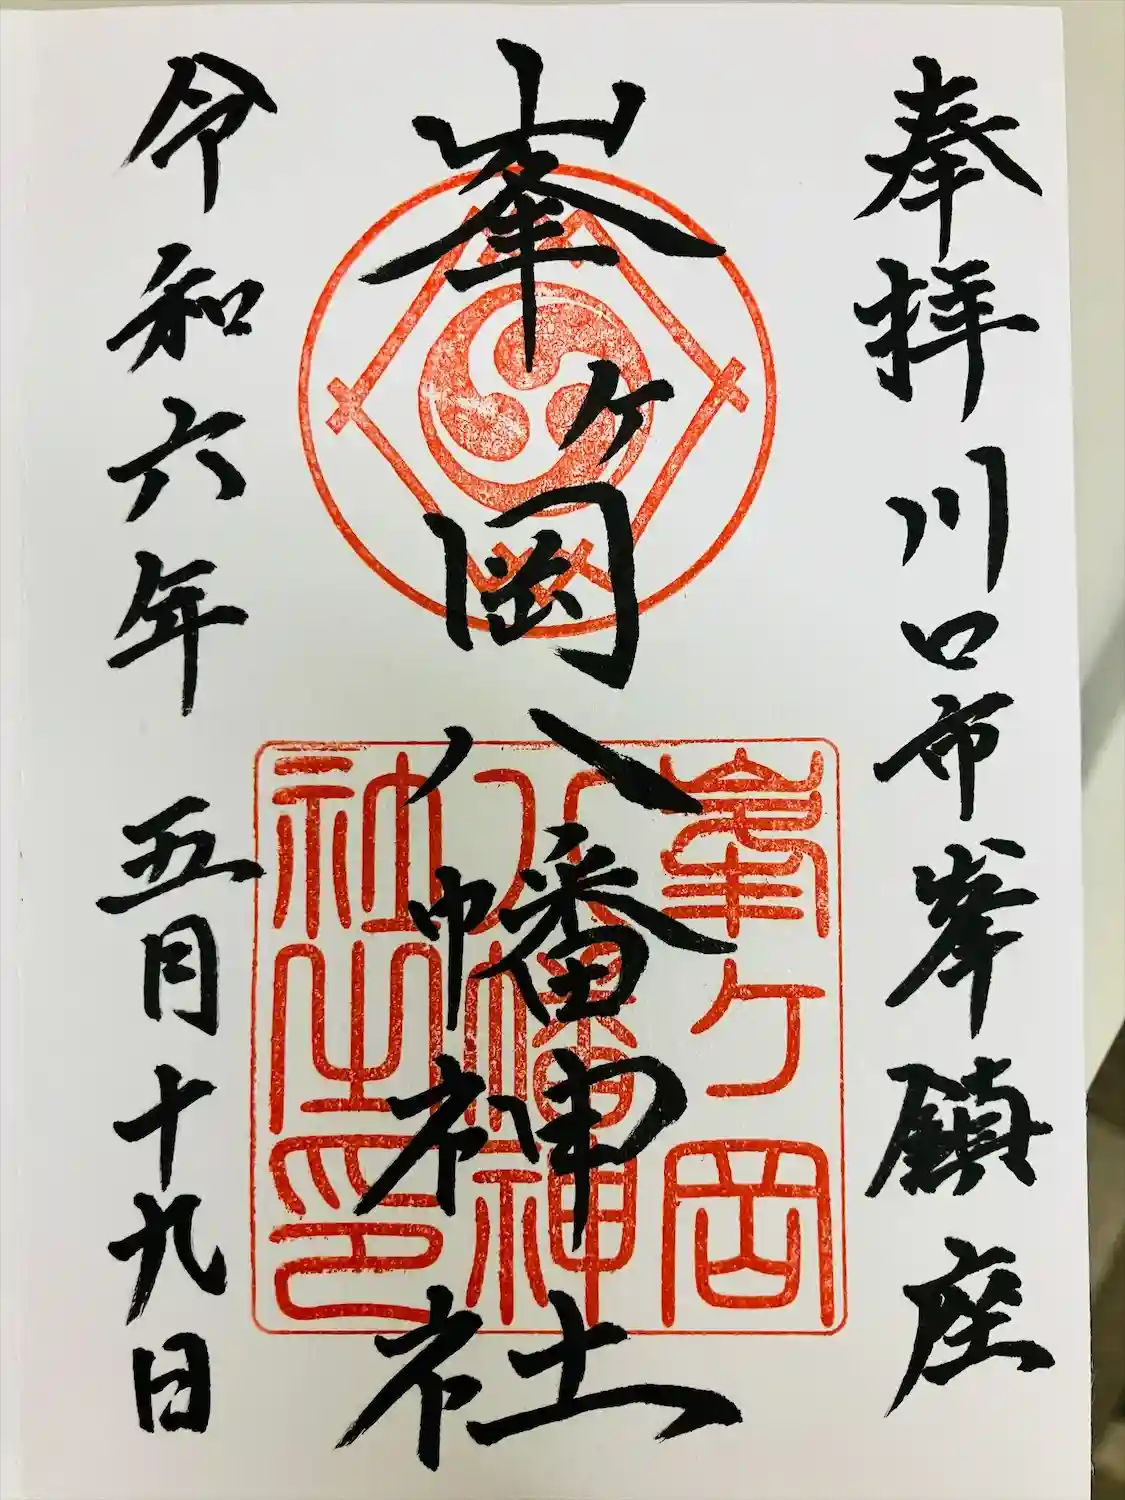 奉拝川口市峯鎮座
峯ヶ岡八幡神社
令和六年五月十九日
峯ヶ岡
八幡神
社之印